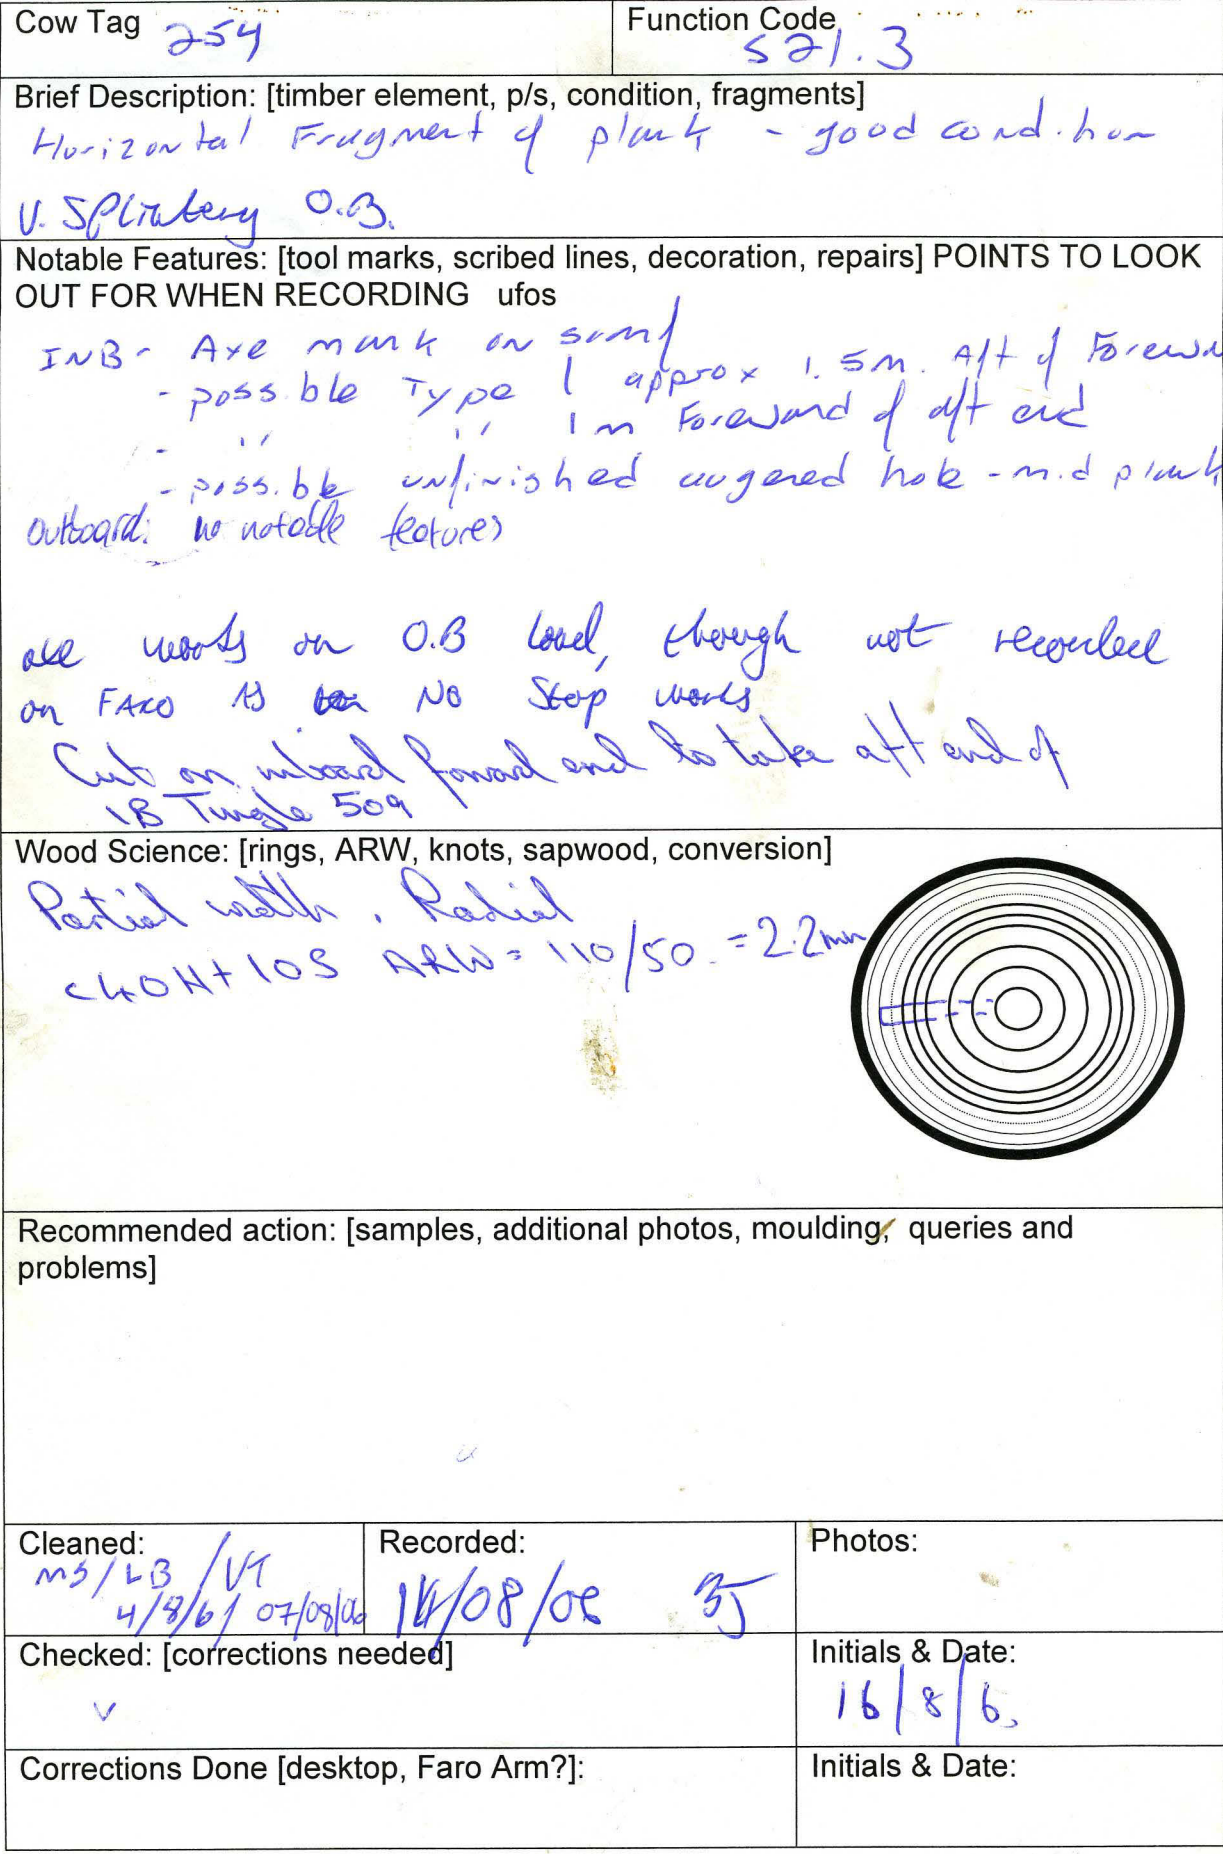 Cow Tag 254
Function Code S21.3
Brief Description: [timber element, p/s, condition, fragments]
Horizontal Fragment of plank - good condition
V. Splintery O.B.
Notable Features: [tool marks, scribed lines, decoration, repairs] POINTS TO LOOK
OUT FOR WHEN RECORDING ufos
INB - Axe mark on scarf
- possible Type 1 approx 1.5m. Aft of Forewa
- " " 1m Foreward of aft end
- possible unfinished augered hole - mid plank
Outboard: no notable features
axe on O.B land, though not recorded
on FARO as No Stop marks
Cut on inboard forward end to take aft end of
IB Tingle 509
Wood Science: [rings, ARW, knots, sapwood, conversion]
Partial width. Radial
c40H+10S ARW = 110/50. = 2.2mm
Recommended action: [samples, additional photos, moulding, queries and
problems]
Cleaned:
MS/LB/VT
4/8/6/ 07/08/06
Recorded:
14/08/06
Photos:
Checked: [corrections needed]
Initials & Date:
16/8/6.
Corrections Done [desktop, Faro Arm?]:
Initials & Date: